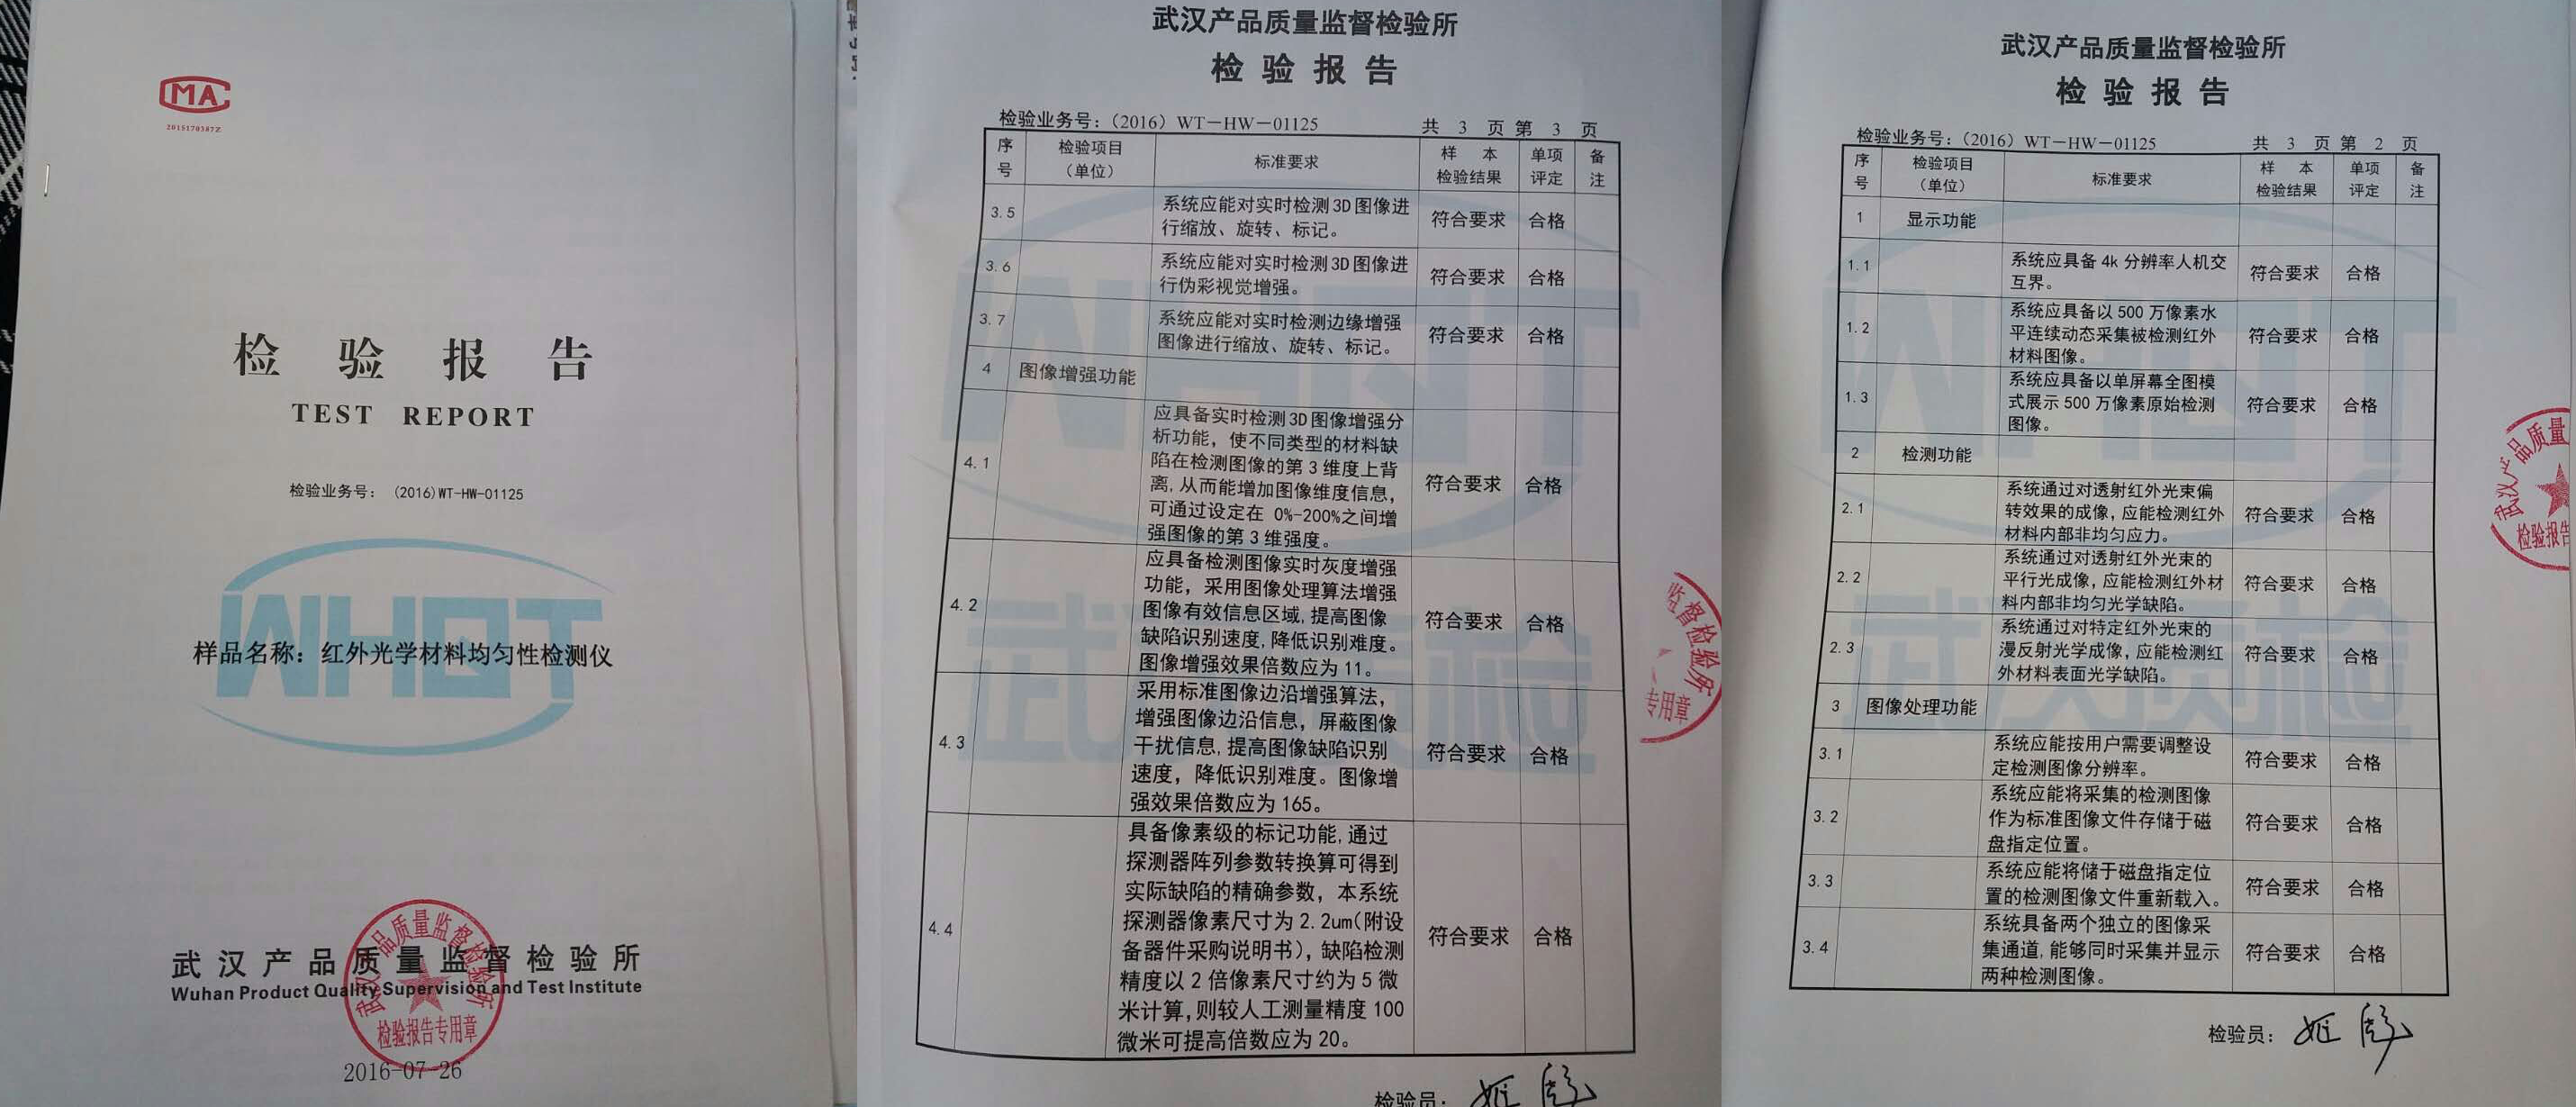 CMA
2015170387Z
检 验 报 告
TEST REPORT
检验业务号： (2016)WT-HW-01125
WHQT
样品名称：红外光学材料均匀性检测仪
武汉产品质量监督检验所
Wuhan Product Quality Supervision and Test Institute
检验报告专用章
2016-07-26
武汉产品质量监督检验所
检 验 报 告
检验业务号：（2016）WT－HW－01125
共 3 页 第 3 页
序号 检验项目（单位） 标准要求 样 本检验结果 单项评定 备注
3.5
系统应能对实时检测3D图像进
行缩放、旋转、标记。
符合要求 合格
3.6
系统应能对实时检测3D图像进
行伪彩视觉增强。
符合要求 合格
3.7
系统应能对实时检测边缘增强
图像进行缩放、旋转、标记。
符合要求 合格
4 图像增强功能
4.1
应具备实时检测3D图像增强分
析功能，使不同类型的材料缺
陷在检测图像的第3维度上背
离,从而能增加图像维度信息，
可通过设定在 0%-200%之间增
强图像的第3维强度。
符合要求 合格
4.2
应具备检测图像实时灰度增强
功能，采用图像处理算法增强
图像有效信息区域,提高图像
缺陷识别速度,降低识别难度。
图像增强效果倍数应为11。
符合要求 合格
4.3
采用标准图像边沿增强算法，
增强图像边沿信息，屏蔽图像
干扰信息,提高图像缺陷识别
速度，降低识别难度。图像增
强效果倍数应为165。
符合要求 合格
4.4
具备像素级的标记功能,通过
探测器阵列参数转换算可得到
实际缺陷的精确参数，本系统
探测器像素尺寸为2.2um(附设
备器件采购说明书)，缺陷检测
精度以2倍像素尺寸约为5微
米计算,则较人工测量精度100
微米可提高倍数应为20。
符合要求 合格
监督检验所
专用章
检验员：
武汉产品质量监督检验所
检 验 报 告
检验业务号：（2016）WT－HW－01125
共 3 页 第 2 页
序号 检验项目（单位） 标准要求 样 本检验结果 单项评定 备注
1 显示功能
1.1
系统应具备4k分辨率人机交
互界。
符合要求 合格
1.2
系统应具备以500万像素水
平连续动态采集被检测红外
材料图像。
符合要求 合格
1.3
系统应具备以单屏幕全图模
式展示500万像素原始检测
图像。
符合要求 合格
2 检测功能
2.1
系统通过对透射红外光束偏
转效果的成像，应能检测红外
材料内部非均匀应力。
符合要求 合格
2.2
系统通过对透射红外光束的
平行光成像,应能检测红外材
料内部非均匀光学缺陷。
符合要求 合格
2.3
系统通过对特定红外光束的
漫反射光学成像,应能检测红
外材料表面光学缺陷。
符合要求 合格
3 图像处理功能
3.1
系统应能按用户需要调整设
定检测图像分辨率。
符合要求 合格
3.2
系统应能将采集的检测图像
作为标准图像文件存储于磁
盘指定位置。
符合要求 合格
3.3
系统应能将储于磁盘指定位
置的检测图像文件重新载入。
符合要求 合格
3.4
系统具备两个独立的图像采
集通道,能够同时采集并显示
两种检测图像。
符合要求 合格
武汉产品质量
检验报告
检验员：